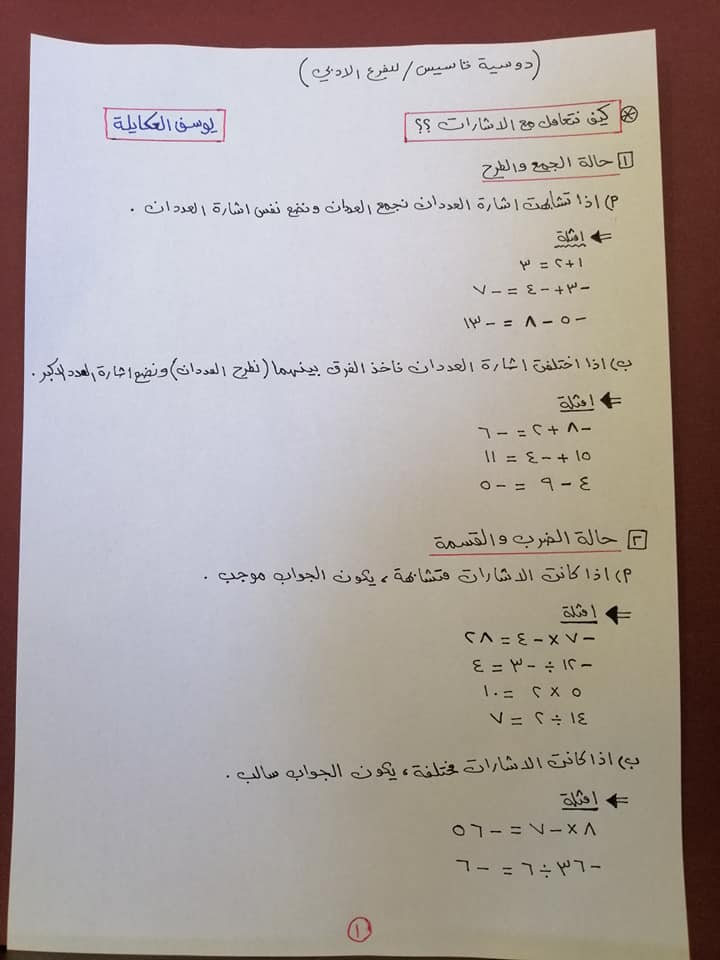 (دوسية تاسيس / للفرع الادبي)
كيف نتعامل مع الاشارات ؟؟
يوسف العكايلة
١ حالة الجمع والطرح
م) اذا تشابهت اشارة العددان نجمع العددان ونضع نفس اشارة العددان .
امثلة
١+٢ = ٣
-٣+-٤ = -٧
-٥-٨ = -١٣
ب) اذا اختلفت اشارة العددان ناخذ الفرق بينهما (نطرح العددان) ونضع اشارة العدد الاكبر .
امثلة
-٨+٢ = -٦
١٥+-٤ = ١١
٤-٩ = -٥
٢ حالة الضرب والقسمة
م) اذا كانت الاشارات متشابهة ، يكون الجواب موجب .
امثلة
-٧×-٤ = ٢٨
-١٢÷-٣ = ٤
٥×٢ = ١٠
١٤÷٢ = ٧
ب) اذا كانت الاشارات مختلفة ، يكون الجواب سالب .
امثلة
٨×-٧ = -٥٦
-٣٦÷٦ = -٦
١